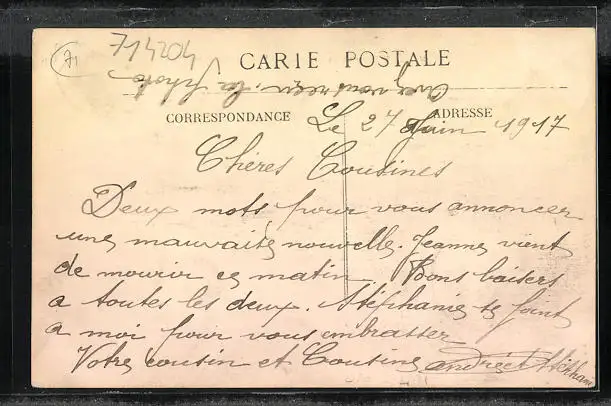 71
714204
CARTE POSTALE
Avez vous reçu la photo
CORRESPONDANCE
ADRESSE
Le 27 Juin 1917
Chères Cousines
Deux mots pour vous annoncer
une mauvaise nouvelle. Jeanne vient
de mourir ce matin Bons baisers
a toutes les deux. Stéphanie se joint
a moi pour vous embrasser
Votre cousin et Cousine André et Stéphanie